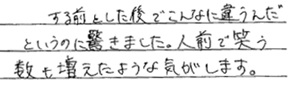 する前とした後でこんなに違うんだ
というのに驚きました。人前で笑う
数も増えたような気がします。